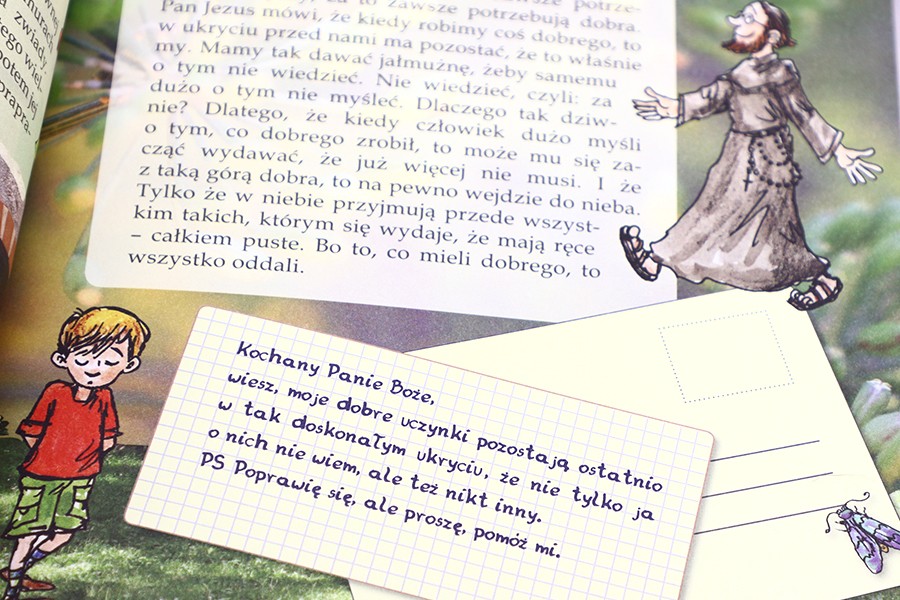 murach
zwiady
tego wiel
potem jej
prapra.
za to zawsze potrzebują dobra.
Pan Jezus mówi, że kiedy robimy coś dobrego, to
w ukryciu przed nami ma pozostać, że to właśnie
my. Mamy tak dawać jałmużnę, żeby samemu
o tym nie wiedzieć. Nie wiedzieć, czyli: za
dużo o tym nie myśleć. Dlaczego tak dziw-
nie? Dlatego, że kiedy człowiek dużo myśli
o tym, co dobrego zrobił, to może mu się za-
cząć wydawać, że już więcej nie musi. I że
z taką górą dobra, to na pewno wejdzie do nieba.
Tylko że w niebie przyjmują przede wszyst-
kim takich, którym się wydaje, że mają ręce
– całkiem puste. Bo to, co mieli dobrego, to
wszystko oddali.
Kochany Panie Boże,
wiesz, moje dobre uczynki pozostają ostatnio
w tak doskonałym ukryciu, że nie tylko ja
o nich nie wiem, ale też nikt inny.
PS Poprawię się, ale proszę, pomóż mi.